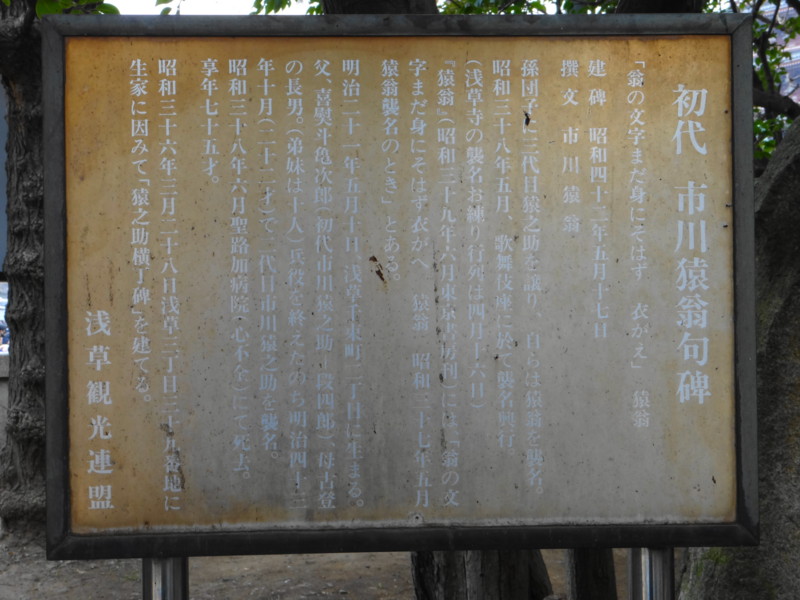 初代 市川猿翁句碑
「翁の文字まだ身にそはず 衣がえ」 猿翁
建碑 昭和四十二年五月十七日
撰文 市川猿翁
孫団子に三代目猿之助を譲り、自らは猿翁を襲名。
昭和三十八年五月、歌舞伎座に於て襲名興行。
(浅草寺の襲名お練り行列は四月十六日)
『猿翁』(昭和三十九年六月東京書房刊)には、「翁の文
字まだ身にそはず衣がへ 猿翁 昭和三十七年五月
猿翁襲名のとき」とある。
明治二十一年五月十日、浅草千束町二丁目に生まる。
父、喜熨斗亀次郎(初代市川猿之助=段四郎)、母古登
の長男。(弟妹は十人)兵役を終えたのち明治四十三
年十月(二十二才)で二代目市川猿之助を襲名。
昭和三十八年六月聖路加病院(心不全)にて死去。
享年七十五才。
昭和三十六年三月二十八日浅草三丁目三十九番地に
生家に因みて「猿之助横丁碑」を建てる。
浅草観光連盟